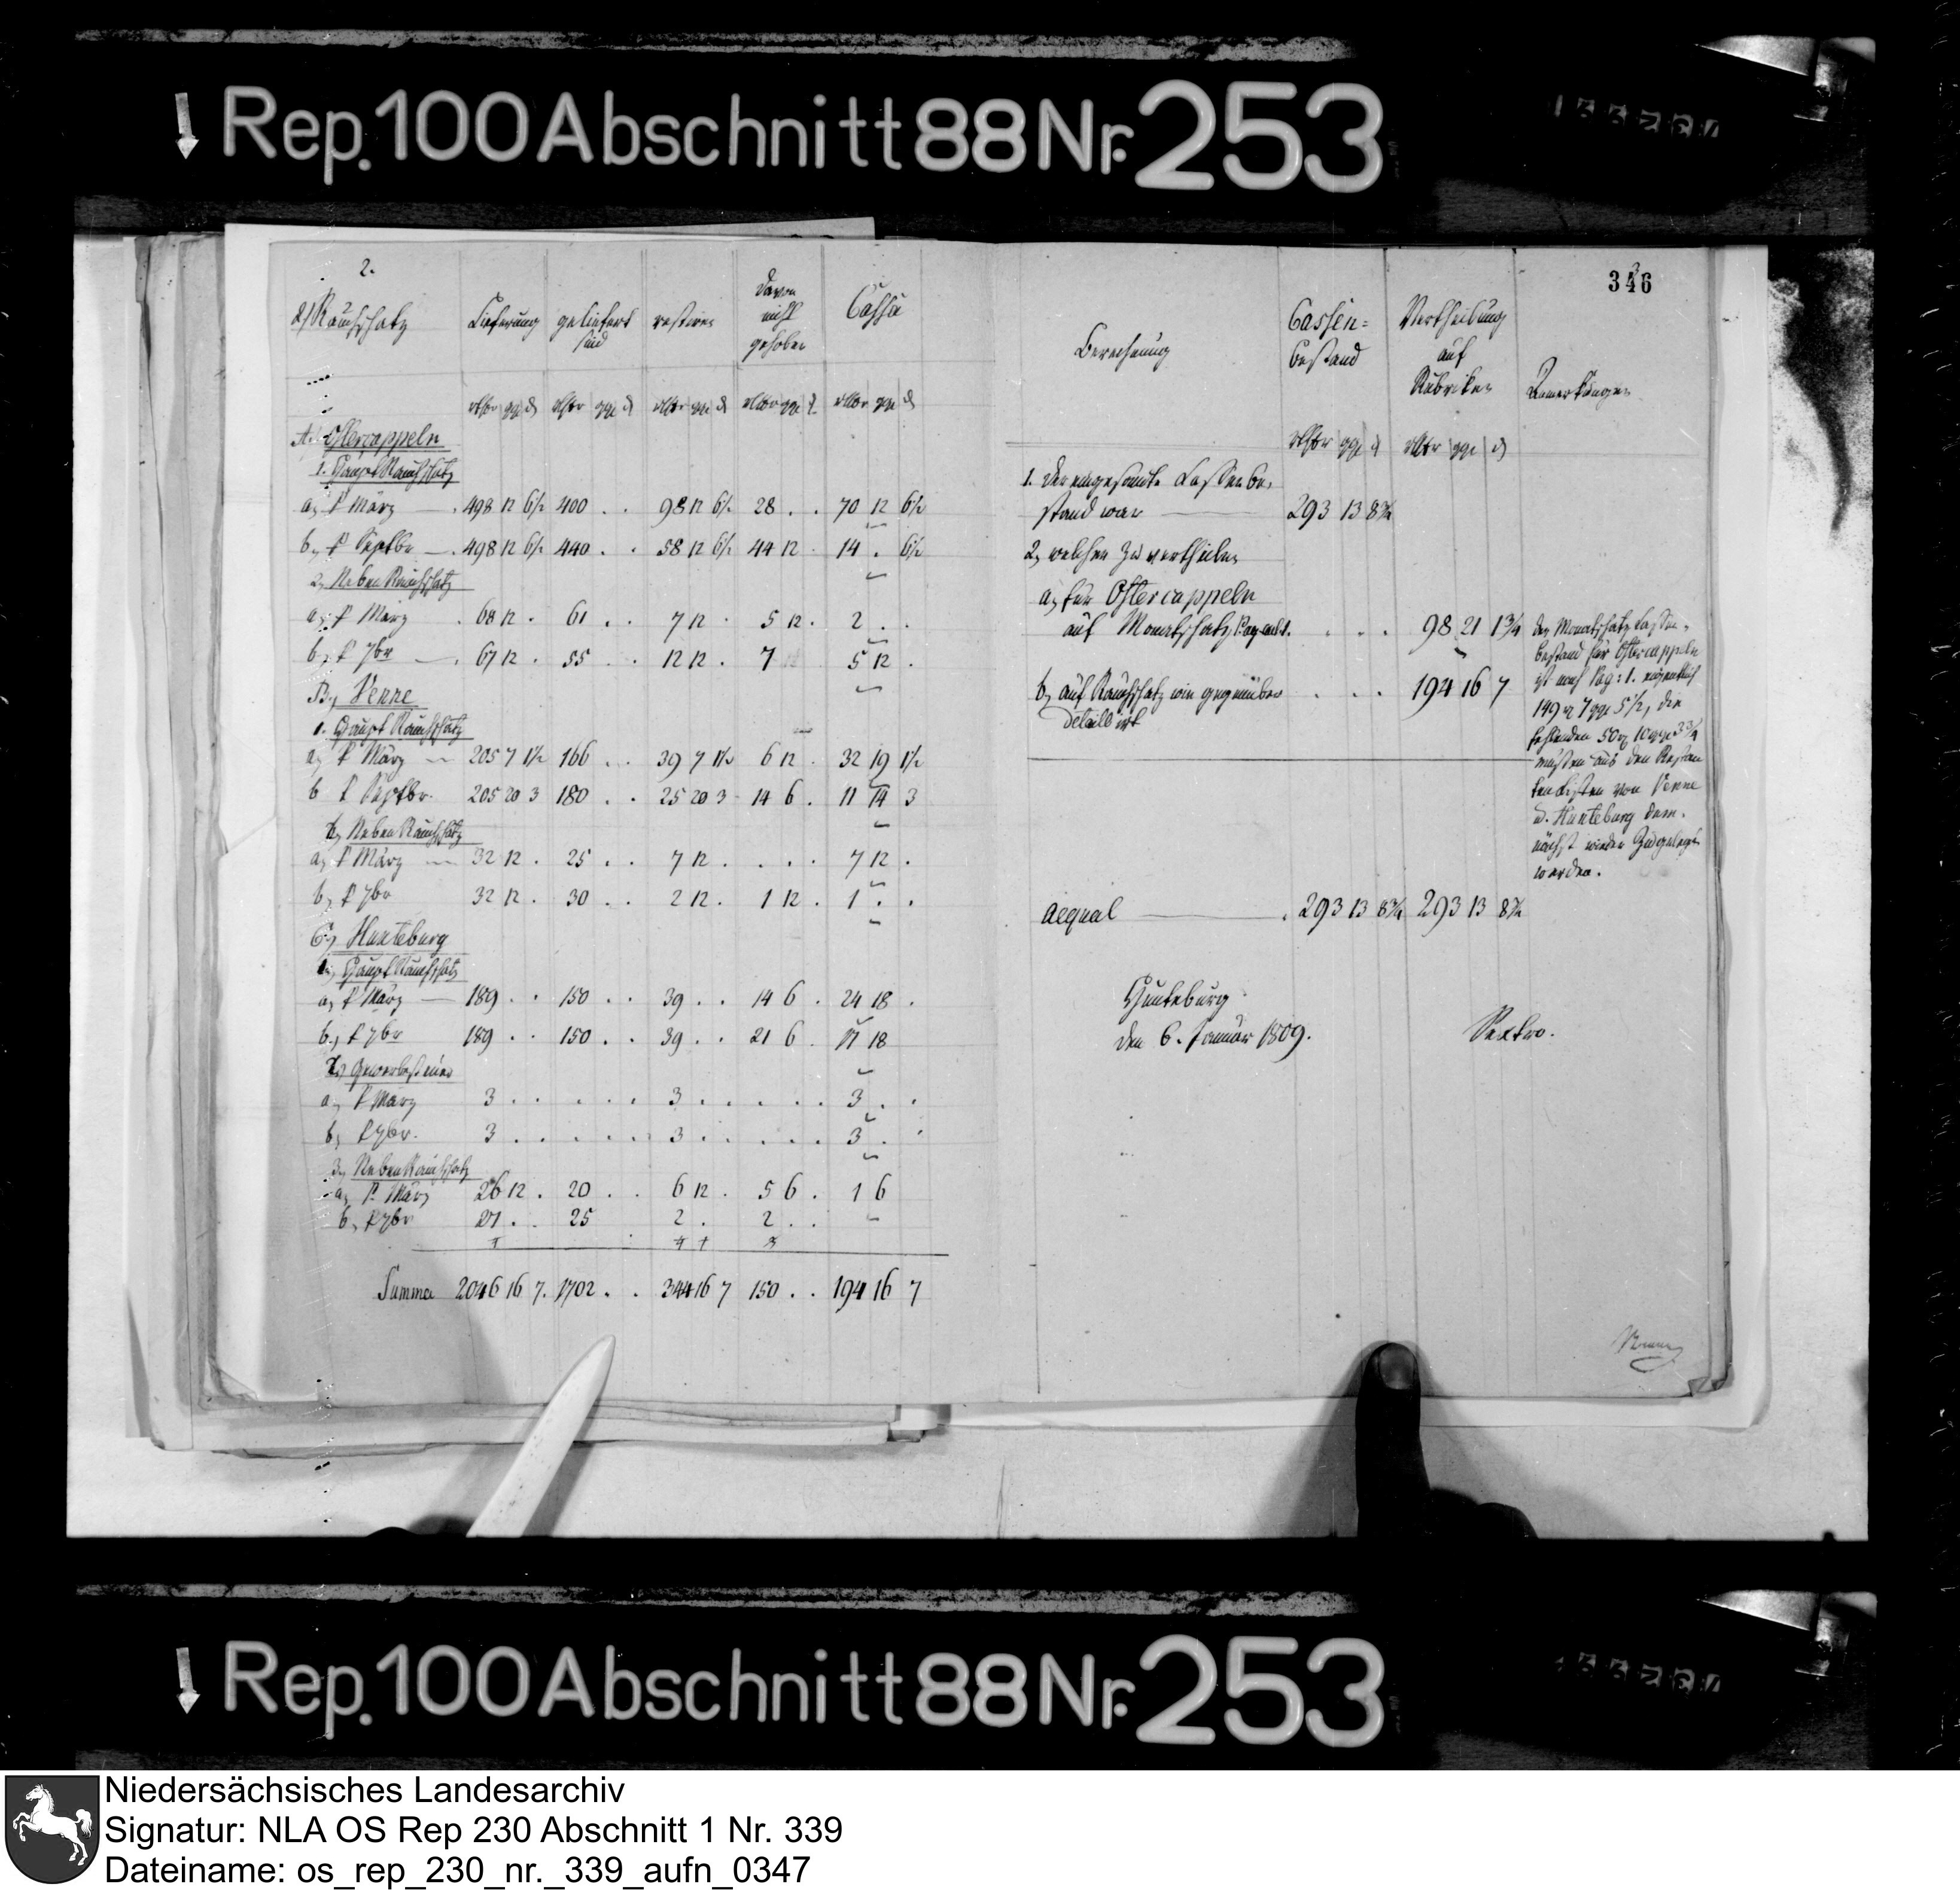 Rep. 100 Abschnitt 88 Nr. 253
346
2.
2) Rauchschatz Lieferung geliefert sind restiren davon nicht gehoben Cassa
rthlr ggr d rthlr ggr d rthlr ggr d rthlr ggr d rthlr ggr d
A. Ostercappeln
1. Haupt Rauchschatz
a, P März 498 12 6½ 400 . . 98 12 6½ 28 . . 70 12 6½
b, P Septbr 498 12 6½ 440 . . 58 12 6½ 44 12 . 14 . 6½
2, Neben Rauchschatz
a, P März 68 12 . 61 . . 7 12 . 5 12 . 2 . .
b, P 7br 67 12 . 55 . . 12 12 . 7 5 12 .
B, Venne
1. Haupt Rauchschatz
a, P März 205 7 1½ 166 . . 39 7 1½ 6 12 . 32 19 1½
b P Septbr. 205 20 3 180 . . 25 20 3 14 6 . 11 14 3
2, Neben Rauchschatz
a, P März 32 12 . 25 . . 7 12 . . . . 7 12 .
b, P 7br 32 12 . 30 . . 2 12 . 1 12 . 1 . .
C, Hunteburg
1, Haupt Rauchschatz
a, P März 189 . . 150 . . 39 . . 14 6 . 24 18 .
b, P 7br 189 . . 150 . . 39 . . 21 6 . 17 18
2, Gewerbesteuer
a, P März 3 . . . . . 3 . . . . . 3 . .
b, P 7br. 3 . . . . . 3 . . . . . 3 . .
3, Neben Rauchschatz
a, P. März 26 12 . 20 . . 6 12 . 5 6 . 1 6
b, P 7br 27 . . 25 2 . 2 . . –
Summa 2046 16 7. 1702 . . 344 16 7 150 . . 194 16 7
Berechnung Cassen= bestand Vertheilung auf Rubriken Bemerkungen
rthlr ggr d rthlr ggr d
1. Der eingesamte Cassenbe-
stand war 293 13 8¾
2, welcher zu vertheilen
a, für Ostercappeln
auf Monatschatz Pag. 1. . . . 98 21 1¾
b, auf Rauchschatz wie gegenüber . . . 194 16 7
detaillirt
der Monatschatz Cassen-
bestand für Ostercappeln
ist nach Pag: 1. eigentlich
149 r 7 ggr 5½, die
fehlenden 50 r 10 ggr 3¾
müssen aus den Restan
ten Listen von Venne
u. Hunteburg dem-
nächst wieder zugelegt
werden.
aequal 293 13 8¾ 293 13 8¾
Hunteburg
den 6. Januar 1809.
Sextro.
Rep. 100 Abschnitt 88 Nr. 253
Niedersächsisches Landesarchiv
Signatur: NLA OS Rep 230 Abschnitt 1 Nr. 339
Dateiname: os_rep_230_nr._339_aufn_0347